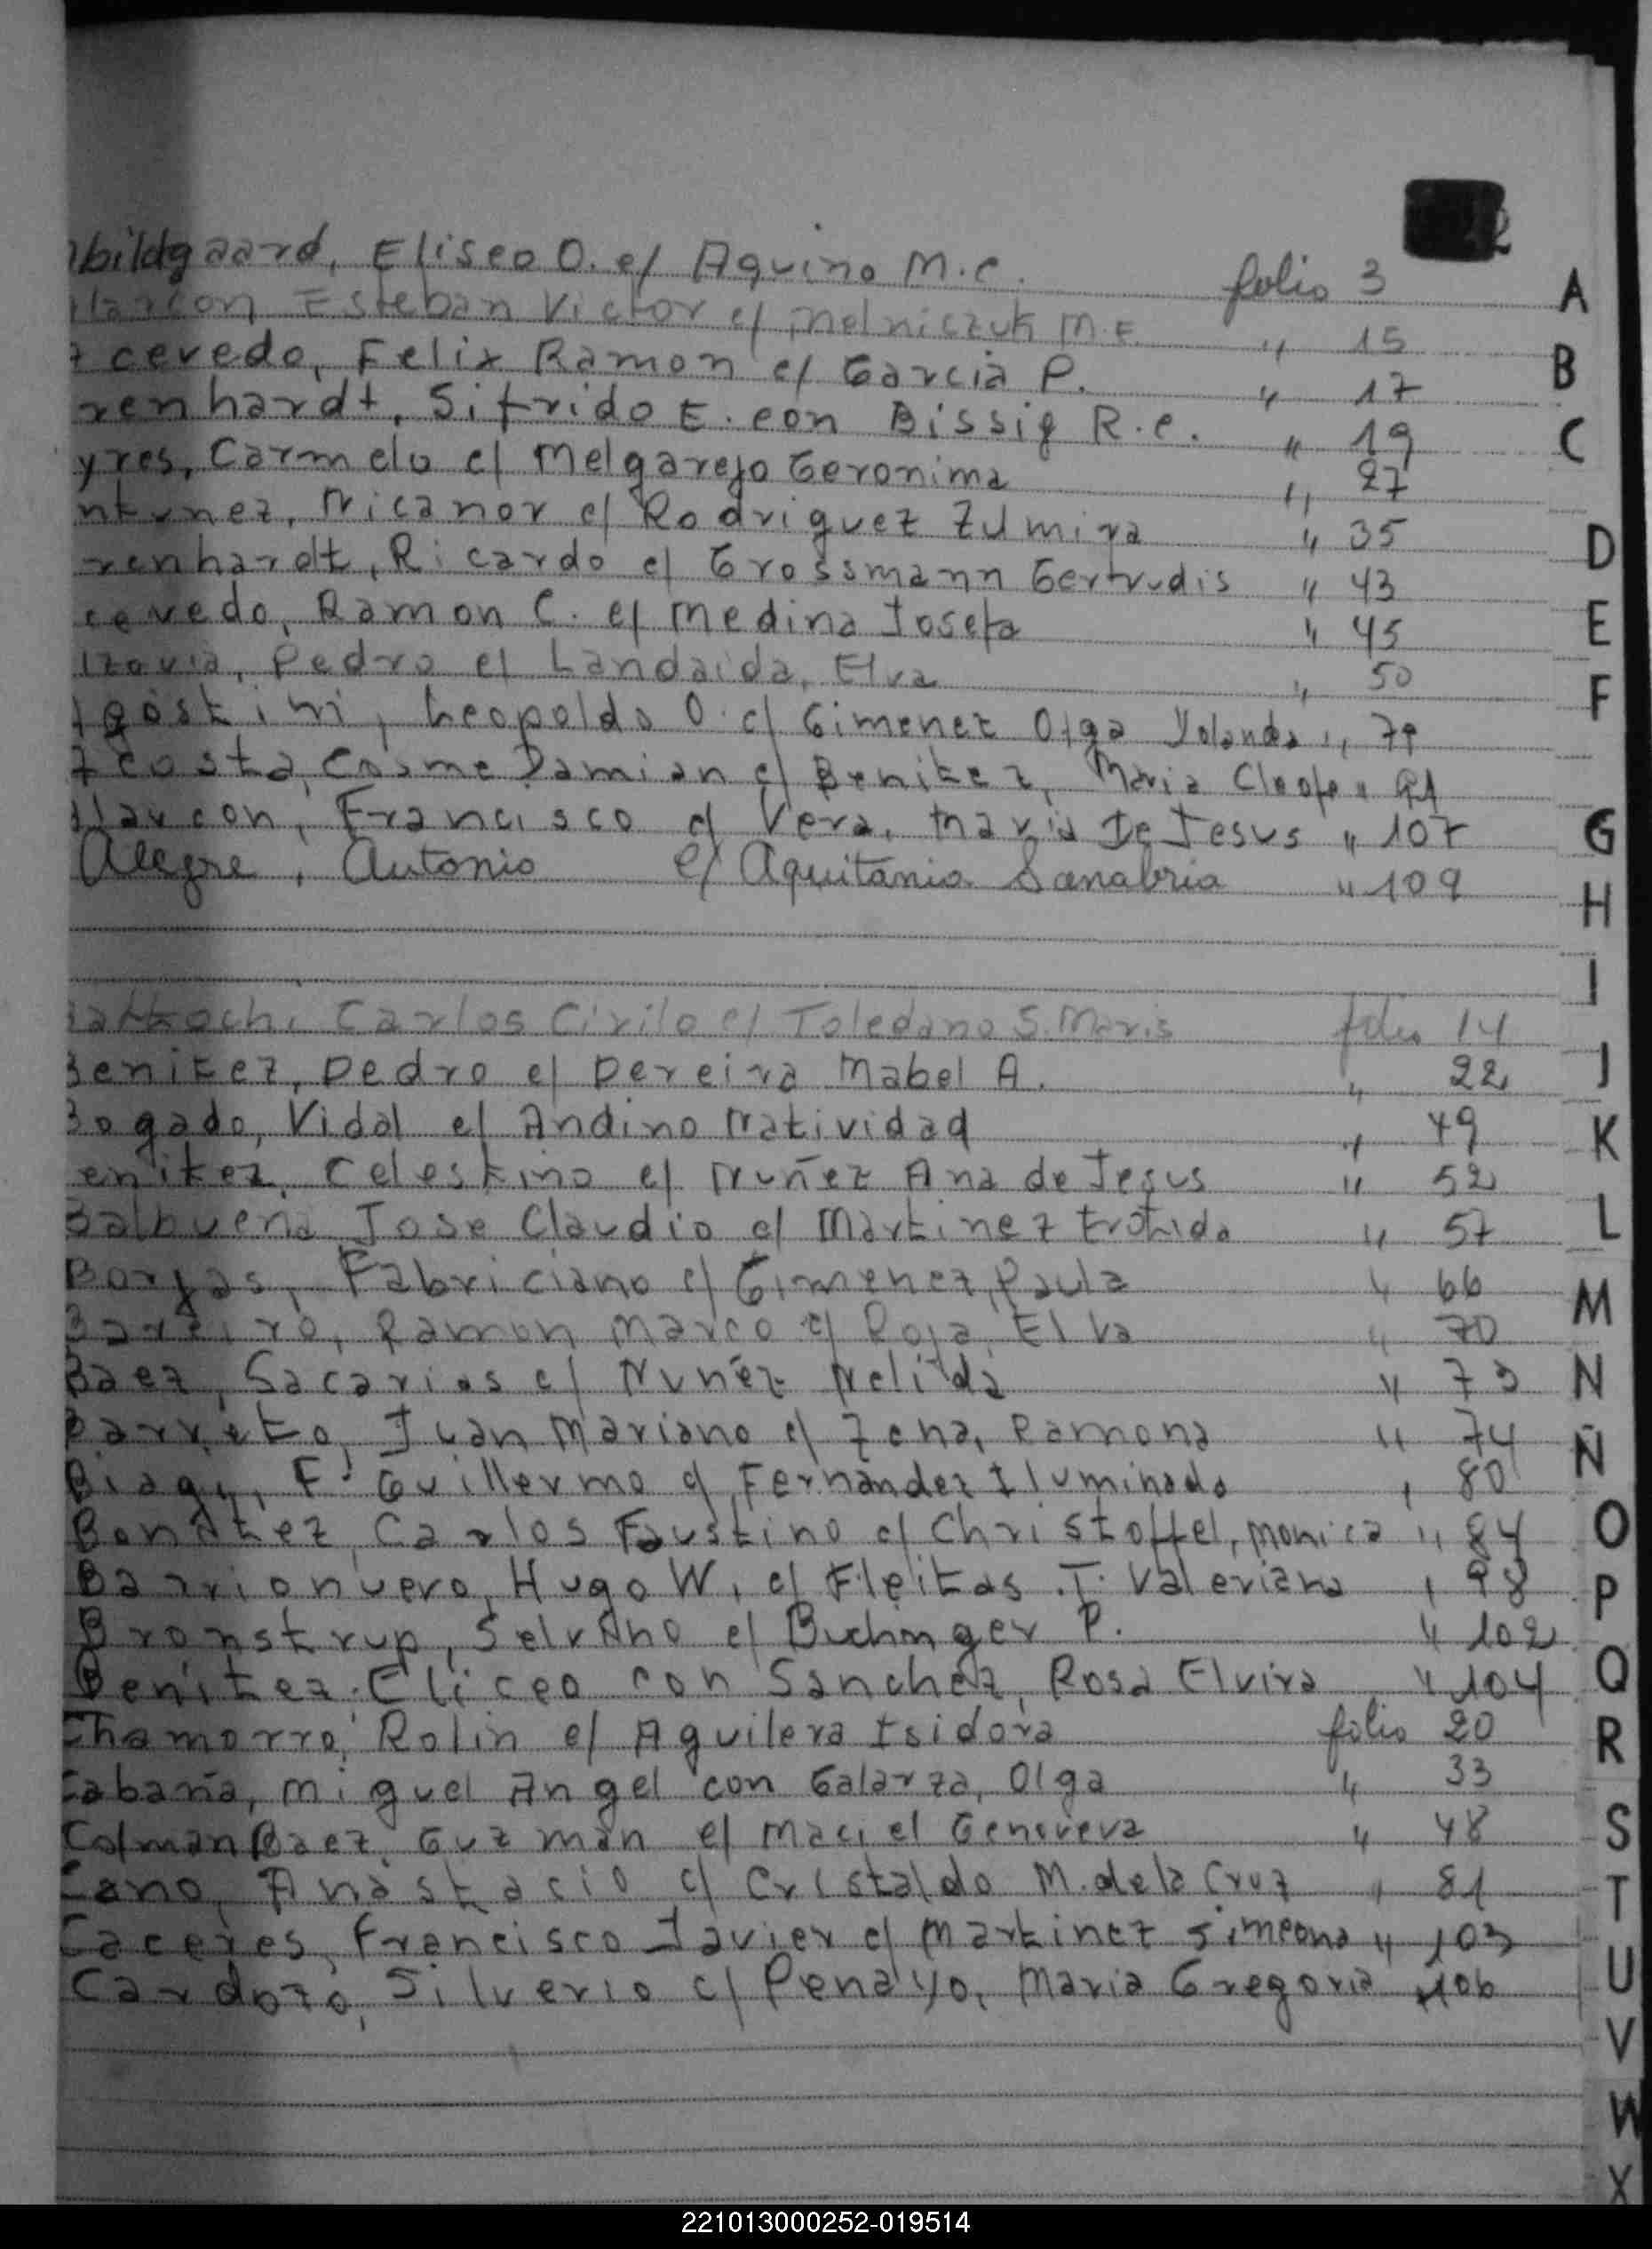 bildgaard, Eliseo O. c/ Aquino M.C. folio 3
larcon Esteban Victor c/ Melniczuk M.E. " 15
cevedo, Felix Ramon c/ Garcia P. " 17
renhardt, Sifrido E. con Bissig R.C. " 19
yres, Carmelo c/ Melgarejo Geronima " 27
ntunez, Nicanor c/ Rodriguez Zulmira " 35
renhardt, Ricardo c/ Grossmann Gertrudis " 43
cevedo, Ramon C. c/ Medina Josefa " 45
Pedro c/ Landaida, Elva " 50
Agostini, Leopoldo O. c/ Gimenez Olga Yolanda "
Acosta, Cosme Damian c/ Benitez, Maria Cleofe "
Alarcon, Francisco c/ Vera, Maria De Jesus " 107
Alegre, Antonio c/ Aquitania Sanabria " 109
Carlos Cirilo c/ Toledano S. Maris folio 14
Benitez, Pedro c/ Pereira Mabel A. " 22
Bogado, Vidal c/ Andino Natividad " 49
enitez, Celestino c/ Nuñez Ana de Jesus " 52
Balbuena Jose Claudio c/ Martinez " 57
Borjas, Fabriciano c/ Gimenez, Paula " 66
Ramon Marco c/ Roja, Elva " 70
Baez, Sacarias c/ Nuñez Nelida " 73
Barreto, Juan Mariano c/ Ramona " 74
F. Guillermo c/ Fernandez Iluminada " 80
Carlos Faustino c/ Christoffel, Monica " 84
Barrionuevo, Hugo W. c/ Fleitas T. Valeriana " 98
Bronstrup, Selvino c/ Buchinger P. " 102
Benitez Eliceo con Sanchez, Rosa Elvira " 104
Chamorro, Rolin c/ Aguilera Isidora folio 20
Cabaña, Miguel Angel con Galarza, Olga " 33
Colman Baez, Guzman c/ Maciel Genoveva " 48
Cano, Anastacio c/ Cristaldo M. de la Cruz " 81
Caceres, Francisco Javier c/ Martinez Simeona " 103
Cardozo, Silverio c/ Penayo, Maria Gregoria " 106
A
B
C
D
E
F
G
H
I
J
K
L
M
N
Ñ
O
P
Q
R
S
T
U
V
W
X
221013000252-019514